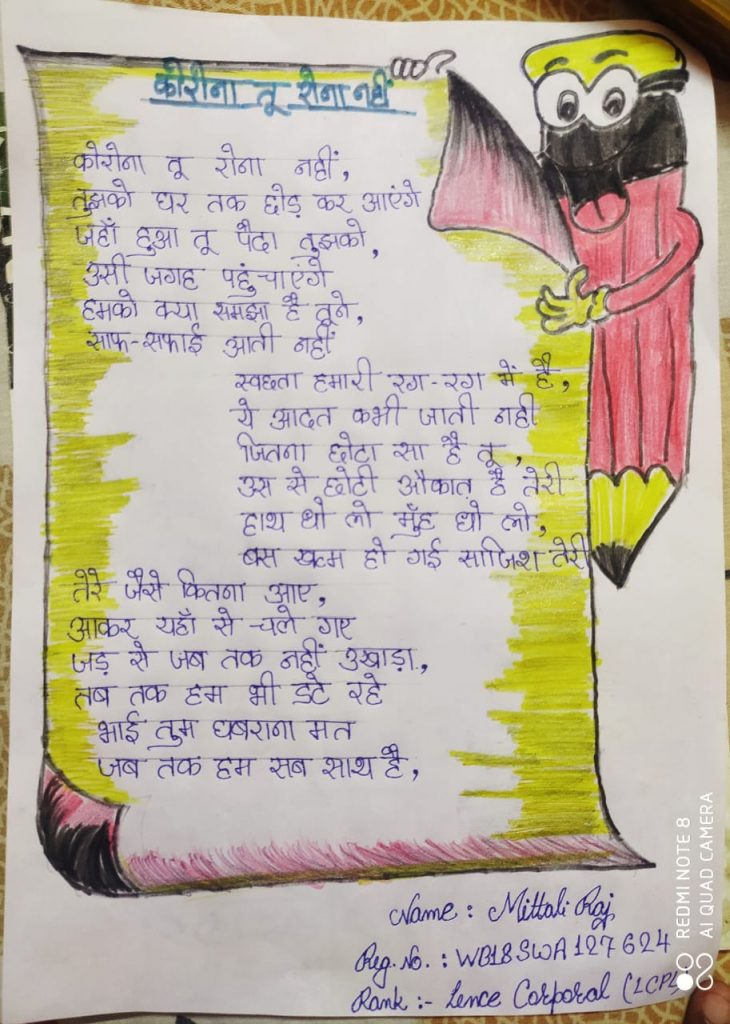 कोरोना तू रोना नहीं
कोरोना तू रोना नहीं,
तुझको घर तक छोड़ कर आएंगे
जहाँ हुआ तू पैदा तुझको,
उसी जगह पहुंचाएंगे
हमको क्या समझा है तूने,
साफ-सफाई आती नहीं
स्वछता हमारी रग-रग में है,
ये आदत कभी जाती नही
जितना छोटा सा है तू,
उस से छोटी औकात है तेरी
हाथ धो लो मुँह धो लो,
बस खत्म हो गई साजिश तेरी
तेरे जैसे कितना आए,
आकर यहाँ से चले गए
जड़ से जब तक नहीं उखाड़ा,
तब तक हम भी डटे रहे
भाई तुम घबराना मत
जब तक हम सब साथ है,
Name : Mittali Raj
Reg. No. : WB18SWA127624
Rank :- Lence Corporal (LCPL)
REDMI NOTE 8
AI QUAD CAMERA